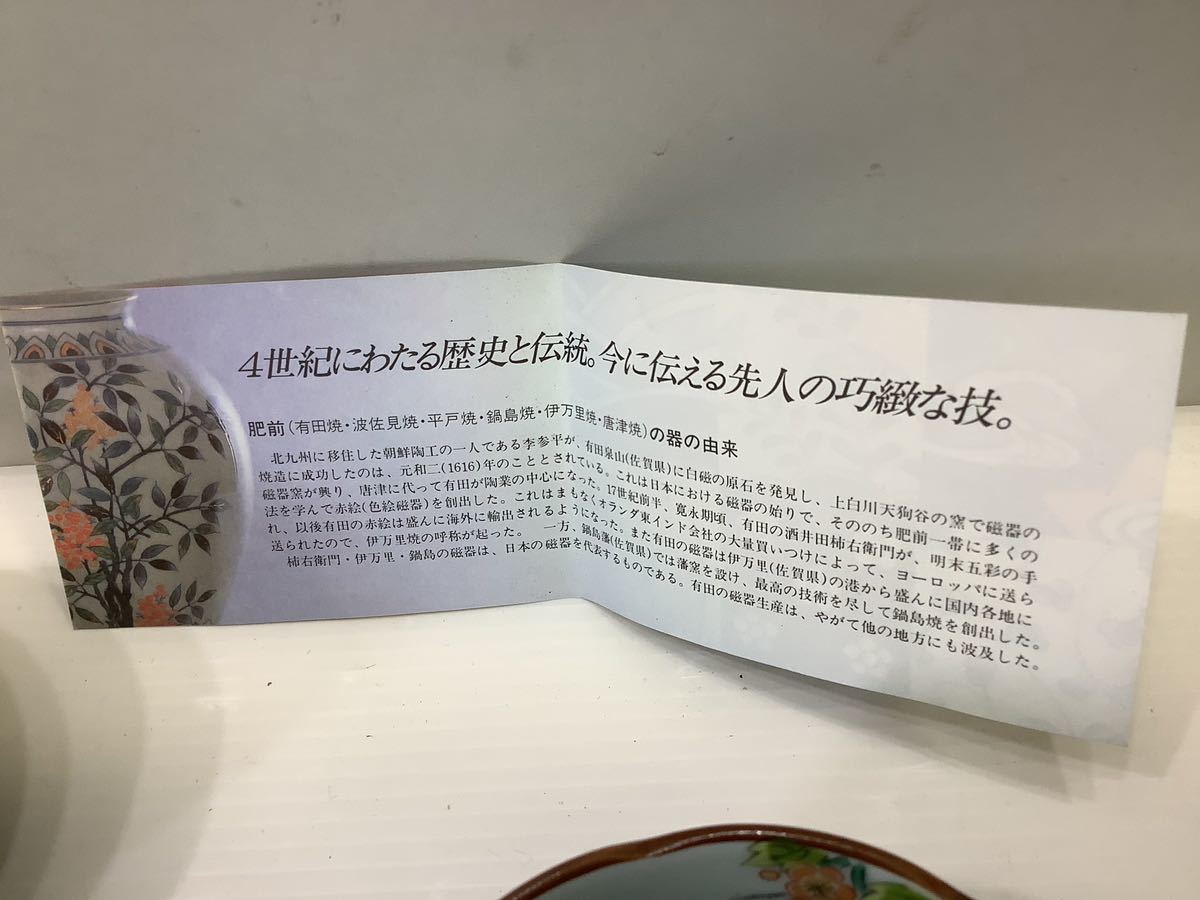 4世紀にわたる歴史と伝統。今に伝える先人の巧緻な技。
肥前(有田焼・波佐見焼・平戸焼・鍋島焼・伊万里焼・唐津焼)の器の由来
北九州に移住した朝鮮陶工の一人である李参平が、有田泉山(佐賀県)に白磁の原石を発見し、上白川天狗谷の窯で磁器の
焼造に成功したのは、元和二(1616)年のこととされている。これは日本における磁器の始りで、そののち肥前一帯に多くの
磁器窯が興り、唐津に代って有田が陶業の中心になった。17世紀前半、寛永期頃、有田の酒井田柿右衛門が、明末五彩の手
法を学んで赤絵(色絵磁器)を創出した。これはまもなくオランダ東インド会社の大量買いつけによって、ヨーロッパに送ら
れ、以後有田の赤絵は盛んに海外に輸出されるようになった。また有田の磁器は伊万里(佐賀県)の港から盛んに国内各地に
送られたので、伊万里焼の呼称が起った。 一方、鍋島藩(佐賀県)では藩窯を設け、最高の技術を尽して鍋島焼を創出した。
柿右衛門・伊万里・鍋島の磁器は、日本の磁器を代表するものである。有田の磁器生産は、やがて他の地方にも波及した。